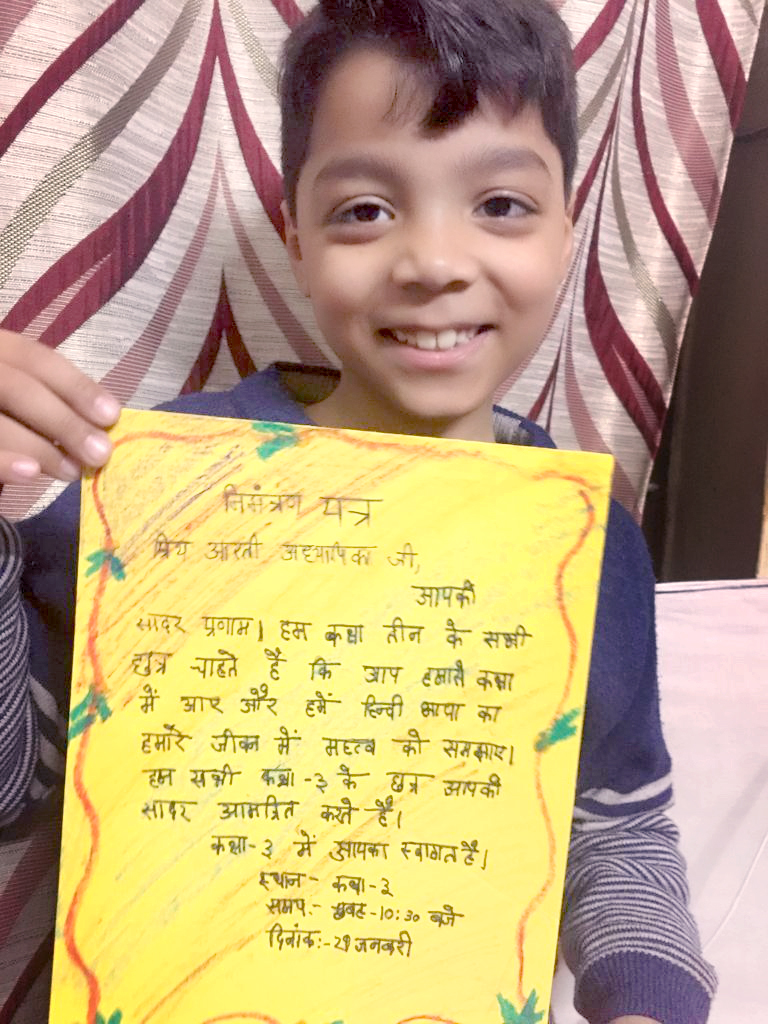 निमंत्रण पत्र
प्रिय आरती अध्यापिका जी,
आपको
सादर प्रणाम। हम कक्षा तीन के सभी
छात्र चाहते हैं कि आप हमारी कक्षा
में आए और हमें हिन्दी भाषा का
हमारे जीवन में महत्व को समझाए।
हम सभी कक्षा-३ के छात्र आपको
सादर आमंत्रित करते हैं।
कक्षा-३ में आपका स्वागत है।
स्थान- कक्षा-३
समय:- सुबह-10:30 बजे
दिनांक:-29 जनवरी